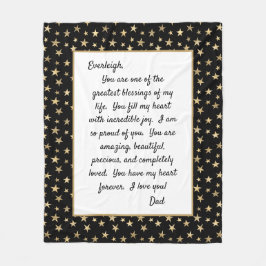 Everleigh,
You are one of the
greatest blessings of my
life. You fill my heart
with incredible joy. I am
so proud of you. You are
amazing, beautiful,
precious, and completely
loved. You have my heart
forever. I love you!
Dad